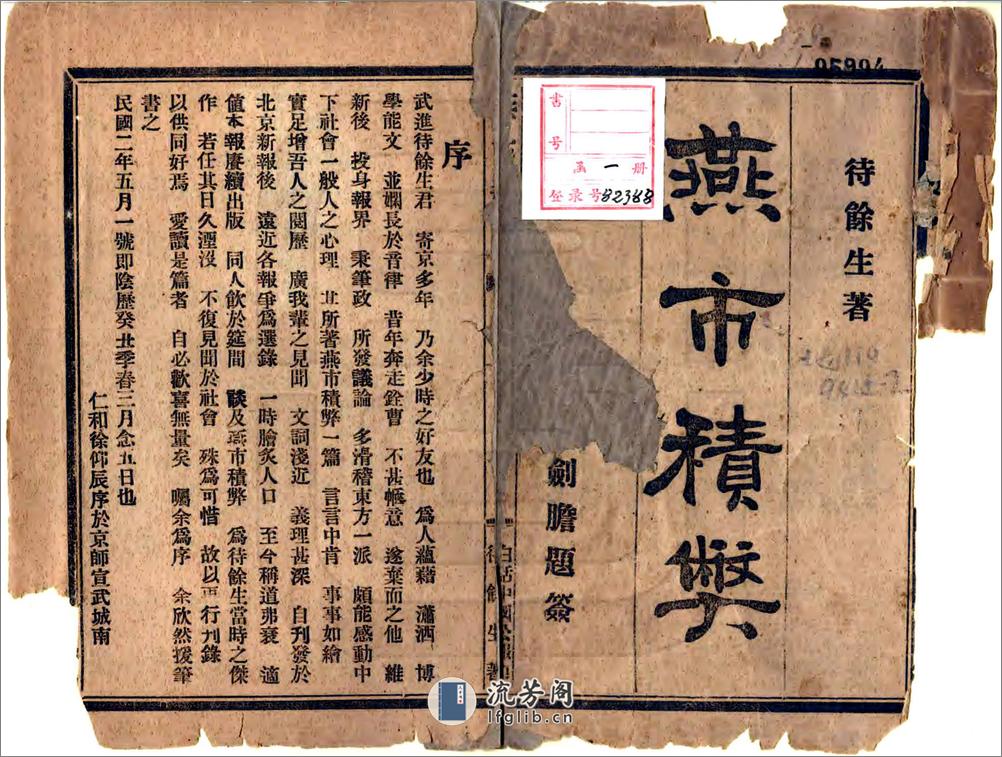 待餘生著
燕市積弊
劍膽題簽
95994
书号
函一册
登录号82388
待餘生著
序
武進待餘生君　寄京多年　乃余少時之好友也　爲人蘊藉　瀟洒　博
學能文　並嫻長於音律　昔年奔走銓曹　不甚愜意　遂棄而之他　維
新後　投身報界　秉筆政　所發議論　多滑稽東方一派　頗能感動中
下社會一般人之心理　其所著燕市積弊一篇　言言中肯　事事如繪
實足增吾人之閱歷　廣我輩之見聞　文詞淺近　義理甚深　自刊發於
北京新報後　遠近各報爭爲選錄　一時膾炙人口　至今稱道弗衰　適
值本報賡續出版　同人飲於筵間　談及燕市積弊　爲待餘生當時之傑
作　若任其日久湮沒　不復見聞於社會　殊爲可惜　故以再行刊錄
以供同好焉　愛讀是篇者　自必歡喜無量矣　囑余爲序　余欣然援筆
書之
民國二年五月一號即陰歷癸丑季春三月念五日也
仁和徐仰辰序於京師宣武城南
流芳阁
lfglib.cn